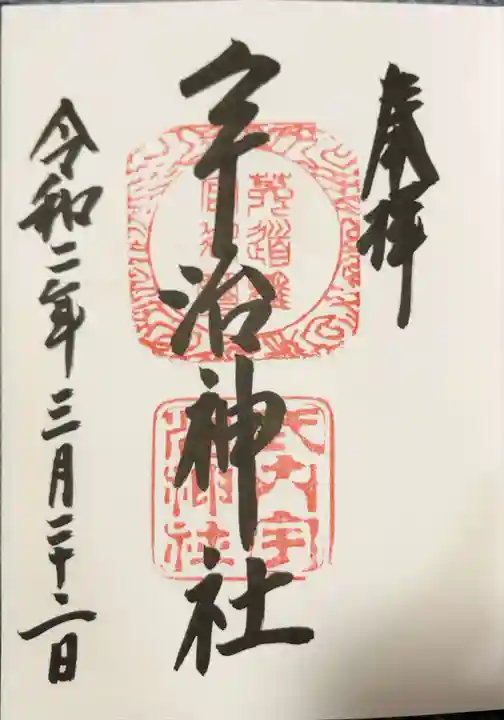 奉拝
宇治神社
式内宇
治神社
令和二年三月二十二日